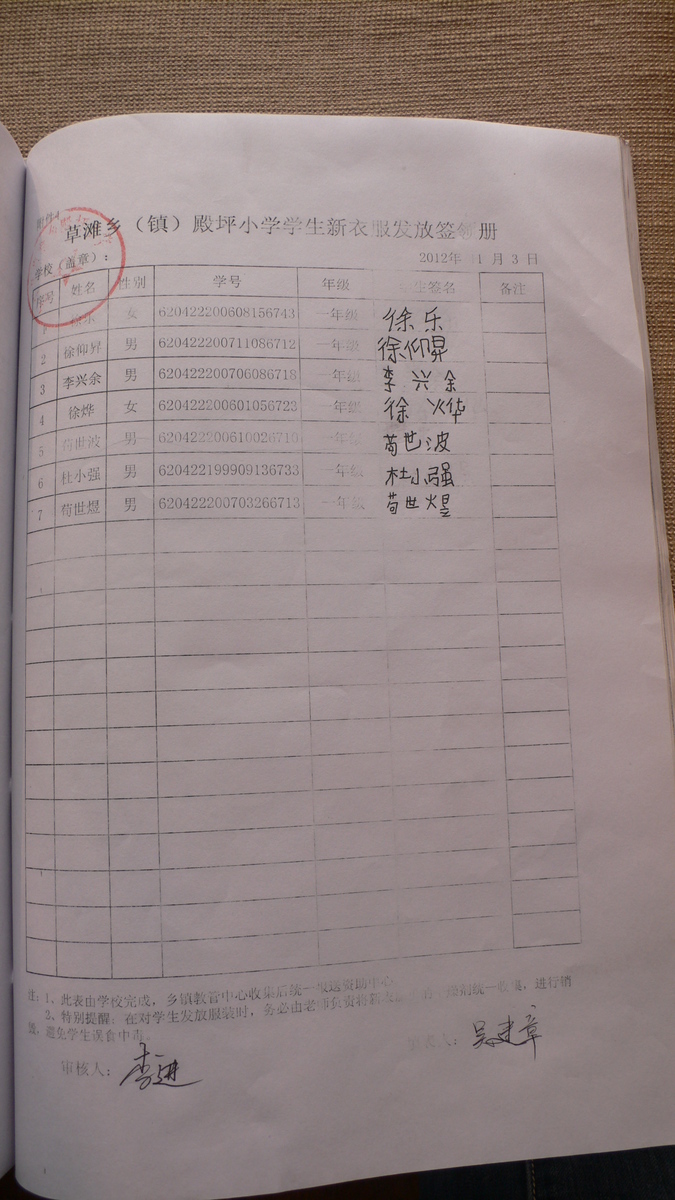 附件4
草滩乡（镇）殿坪小学学生新衣服发放签领册
学校（盖章）： 2012年 11 月 3 日
序号 姓名 性别 学号 年级 学生签名 备注
1 徐乐 女 620422200608156743 一年级 徐乐
2 徐仰昇 男 620422200711086712 一年级 徐仰昇
3 李兴余 男 620422200706086718 一年级 李兴余
4 徐烨 女 620422200601056723 一年级 徐烨
5 苟世波 男 620422200610026710 一年级 苟世波
6 杜小强 男 620422199909136733 一年级 杜小强
7 苟世煜 男 620422200703266713 一年级 苟世煜
注：1、此表由学校完成，乡镇教管中心收集后统一报送资助中心
2、特别提醒：在对学生发放服装时，务必由老师负责将新衣 统一收集，进行销
毁，避免学生误食中毒。
审核人：李进 人：吴建章